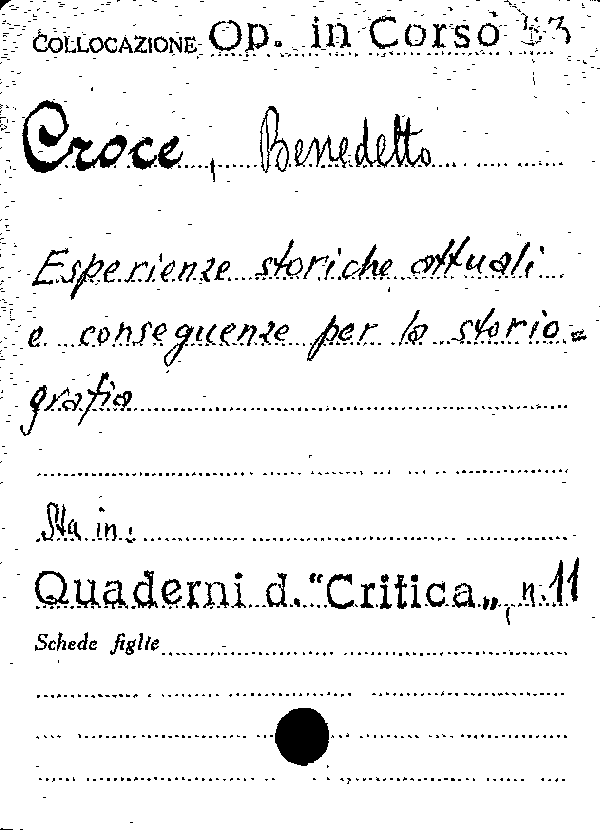 COLLOCAZIONE Op. in Corso 53
Croce, Benedetto
Esperienze storiche attuali
e conseguenze per la storio=
grafia
Sta in:
Quaderni d. "Critica„, n. 11
Schede figlie